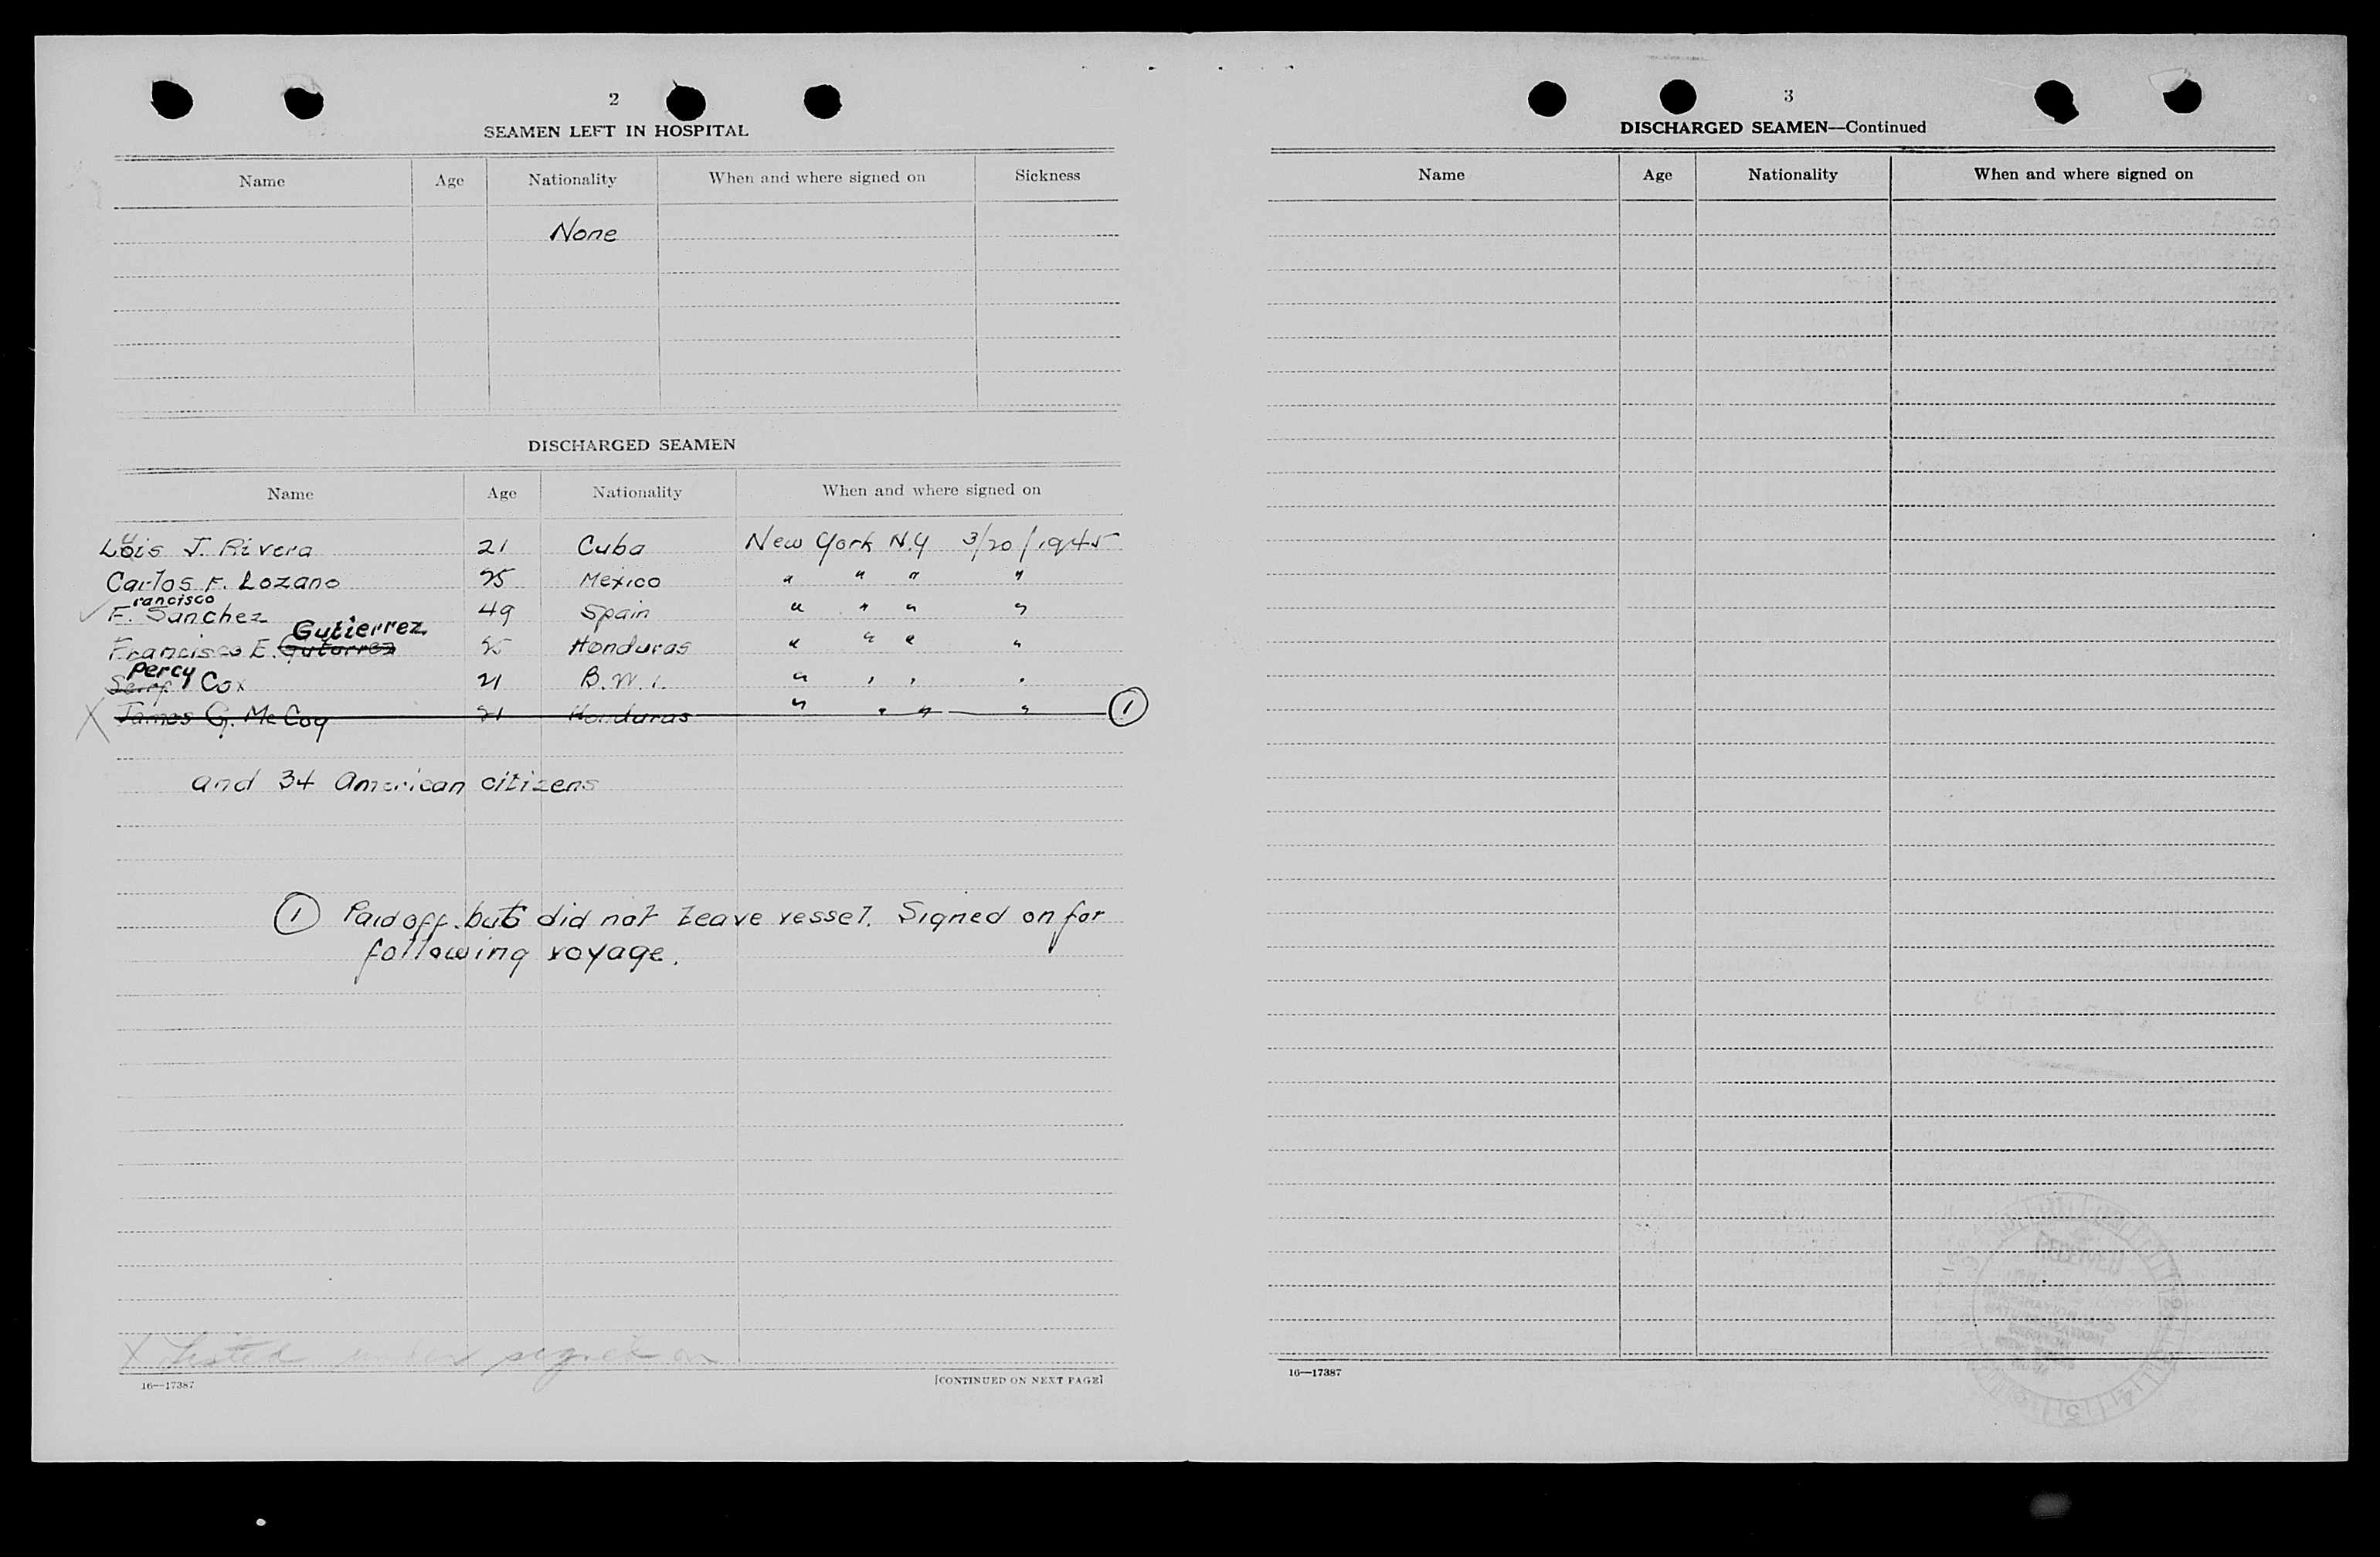 2
SEAMEN LEFT IN HOSPITAL
Name Age Nationality When and where signed on Sickness
None
DISCHARGED SEAMEN
Name Age Nationality When and where signed on
Luis J. Rivera 21 Cuba New York N.Y 3/20/1945
Carlos F. Lozano 25 Mexico " " " "
Francisco
F. Sanchez 49 Spain " " " "
Gutierrez
Francisco E. Gutarrez 25 Honduras " " " "
Percy
Cox 21 B.W.I. " " " "
James G. McCoy 21 Honduras " " " " 1
and 34 American citizens
1 Paid off but did not leave vessel. Signed on for
following voyage.
X Listed under signed on
16—17387 [CONTINUED ON NEXT PAGE]
3
DISCHARGED SEAMEN—Continued
Name Age Nationality When and where signed on
RECEIVED
16—17387